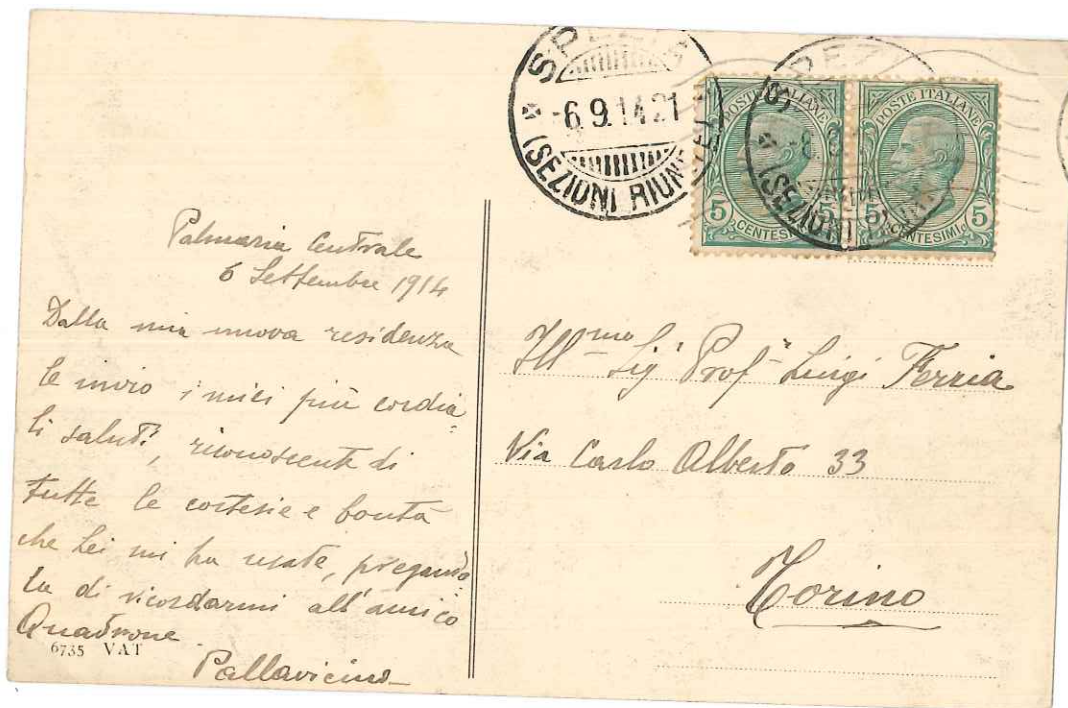 SPEZIA
-6.9.14 21
(SEZIONI RIUNITE)
SPEZIA
(SEZIONI
POSTE ITALIANE
5 CENTESIMI 5
POSTE ITALIANE
5 CENTESIMI 5
Palmaria Centrale
6 Settembre 1914
Dalla mia nuova residenza
le invio i miei più cordia=
li saluti, riconoscente di
tutte le cortesie e bontà
che Lei mi ha usate, pregando
la di ricordarmi all'amico
Quadrone
Pallavicino
6735 VAT
Ill.mo Sigr Profr Luigi Ferria
Via Carlo Alberto 33
Torino